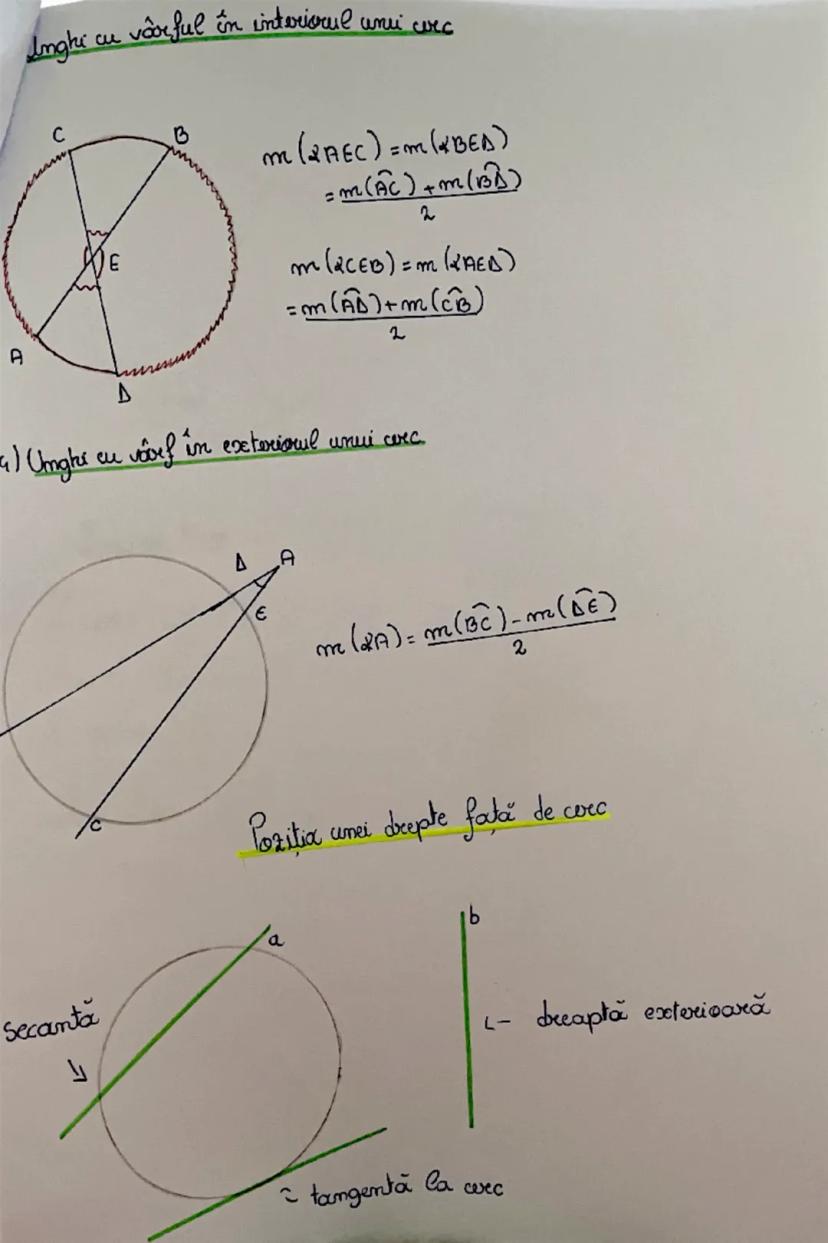 Unghi cu vârful în interiorul unui cerc
C
B
E
A
D
m(∢AEC) = m(∢BED)
= m(A͡C) + m(B͡D)
2
m(∢CEB) = m(∢AED)
= m(A͡D) + m(C͡B)
2
4) Unghi cu vârf în exteriorul unui cerc
D
A
E
C
m(∢A) = m(B͡C) - m(D͡E)
2
Poziția unei drepte față de cerc
a
b
secantă
dreaptă exterioară
tangentă la cerc